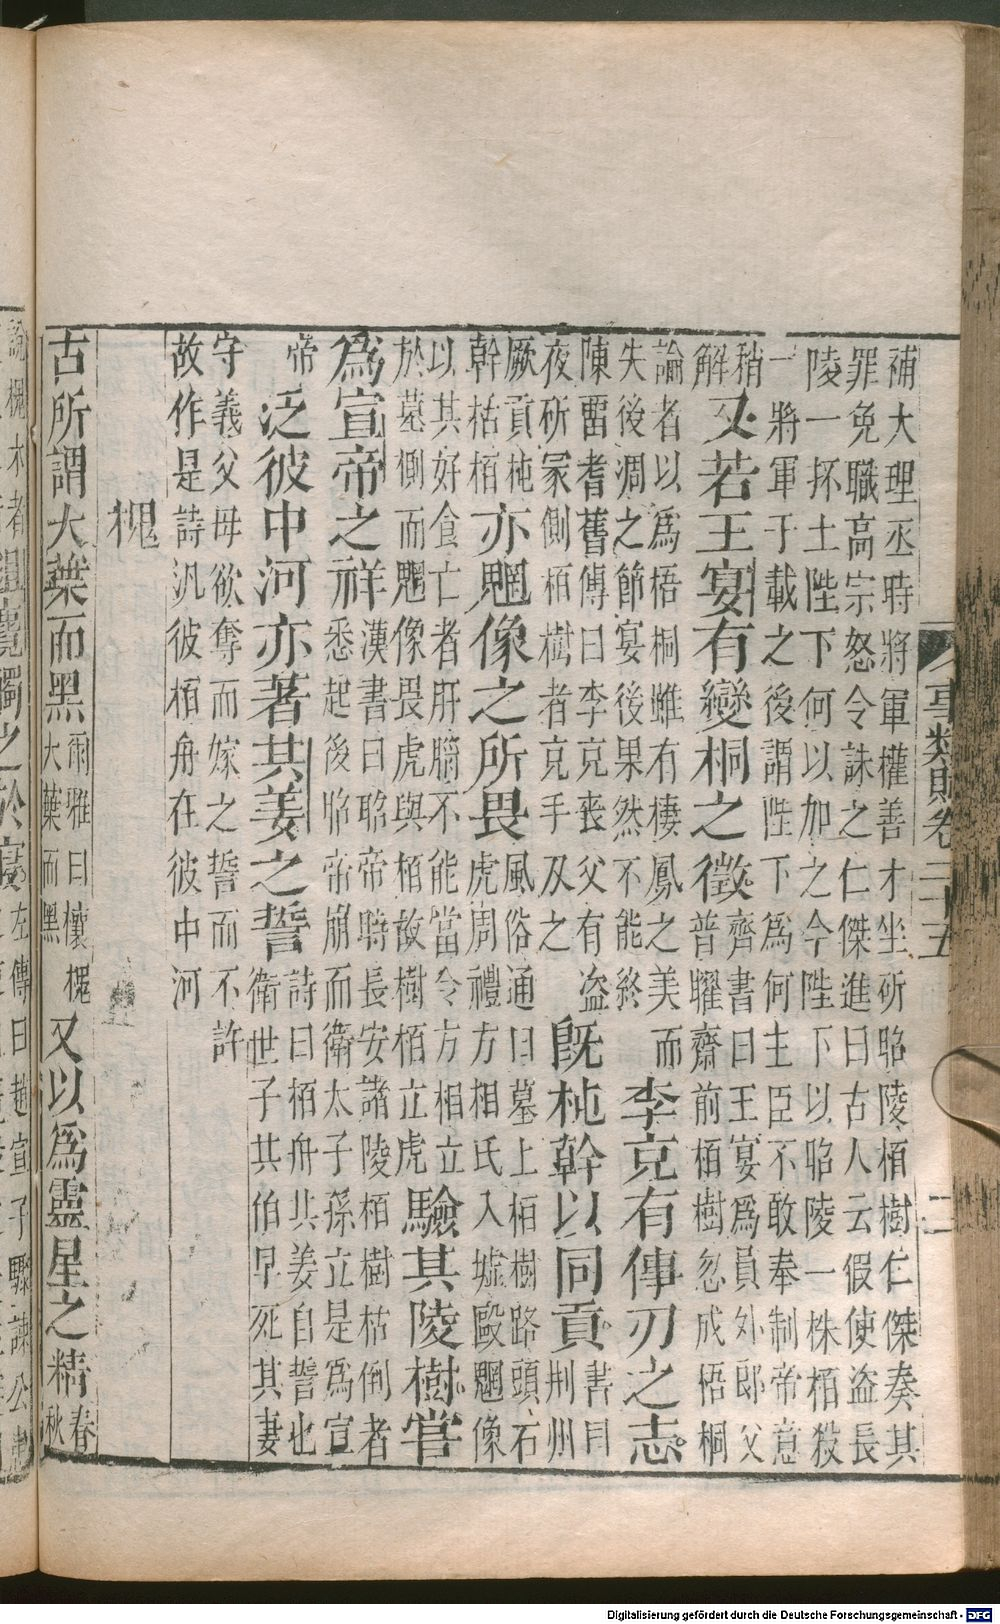 事類賦卷二十五 二
補大理丞時將軍權善才坐斫昭陵栢樹仁傑奏其
罪免職高宗怒令誅之仁傑進曰古人云假使盜長
陵一抔土陛下何以加之今陛下以昭陵一株栢殺
一將軍于載之後謂陛下為何主臣不敢奉制帝意
稍
解
又若王宴有變桐之徵
齊書曰王宴為員外郎父
普曜齋前栢樹忽成梧桐
論者以為梧桐雖有棲鳳之美而
失後凋之節宴後果然不能終
李克有傳刃之志
陳畱耆舊傳曰李克喪父有盜
夜斫冢側栢樹者克手及之
既杶幹以同貢
書曰
荆州
厥貢杶
幹栝栢
亦魍像之所畏
風俗通曰墓上栢樹路頭石
虎周禮方相氏入墟毆魍像
以其好食亡者肝腦不能當令方相立
於墓側而魍像畏虎與栢故樹栢立虎
驗其陵樹嘗
為宣帝之祥
漢書曰昭帝時長安諸陵栢樹枯倒者
悉起後昭帝崩而衛太子孫立是為宣
帝
泛彼中河亦著共姜之誓
詩曰栢舟共姜自誓也
衛世子共伯早死其妻
守義父母欲奪而嫁之誓而不許
故作是詩汎彼栢舟在彼中河
槐
古所謂大葉而黑
爾雅曰櫰槐
大葉而黑
又以為靈星之精
春
秋
左傳曰趙宣子驟諫公
Digitalisierung gefördert durch die Deutsche Forschungsgemeinschaft - DFG